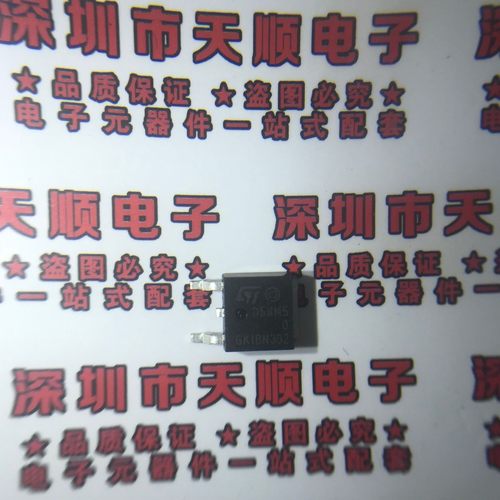 深圳市天顺电子
★品质保证 ★盗图必究★
电子元器件一站式配套
天顺电子
深圳市天
★盗图必究★
★品质保证
一站式配套
电子元器件
ST
GK18N302
深圳市天顺电子
★品质保证 ★盗图必究★
电子元器件一站式配套